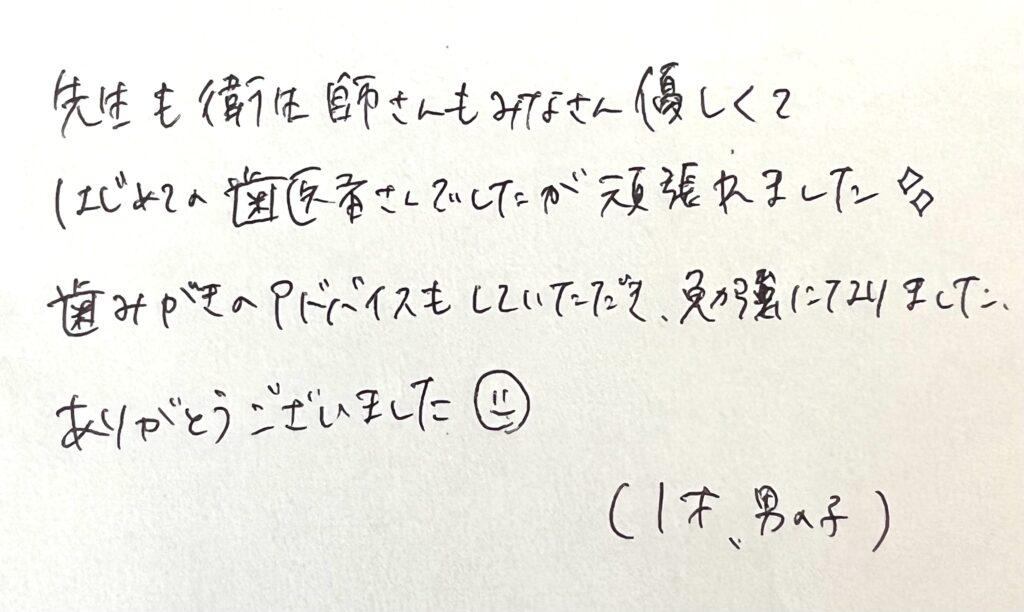 先生も衛生師さんもみなさん優しくて
はじめての歯医者さんでしたが頑張れました
歯みがきのアドバイスもしていただき、勉強になりました。
ありがとうございました
(1才、男の子)